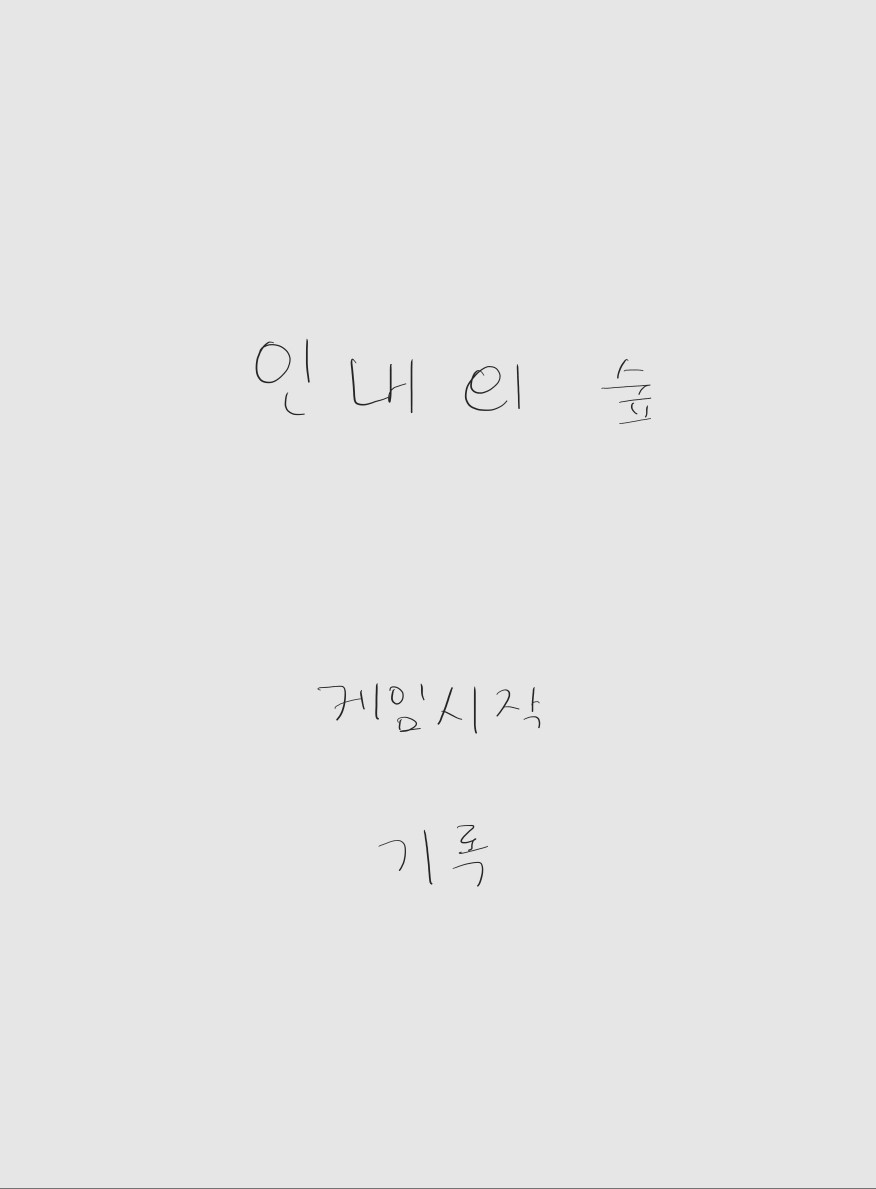 인내의 숲
게임시작
기록